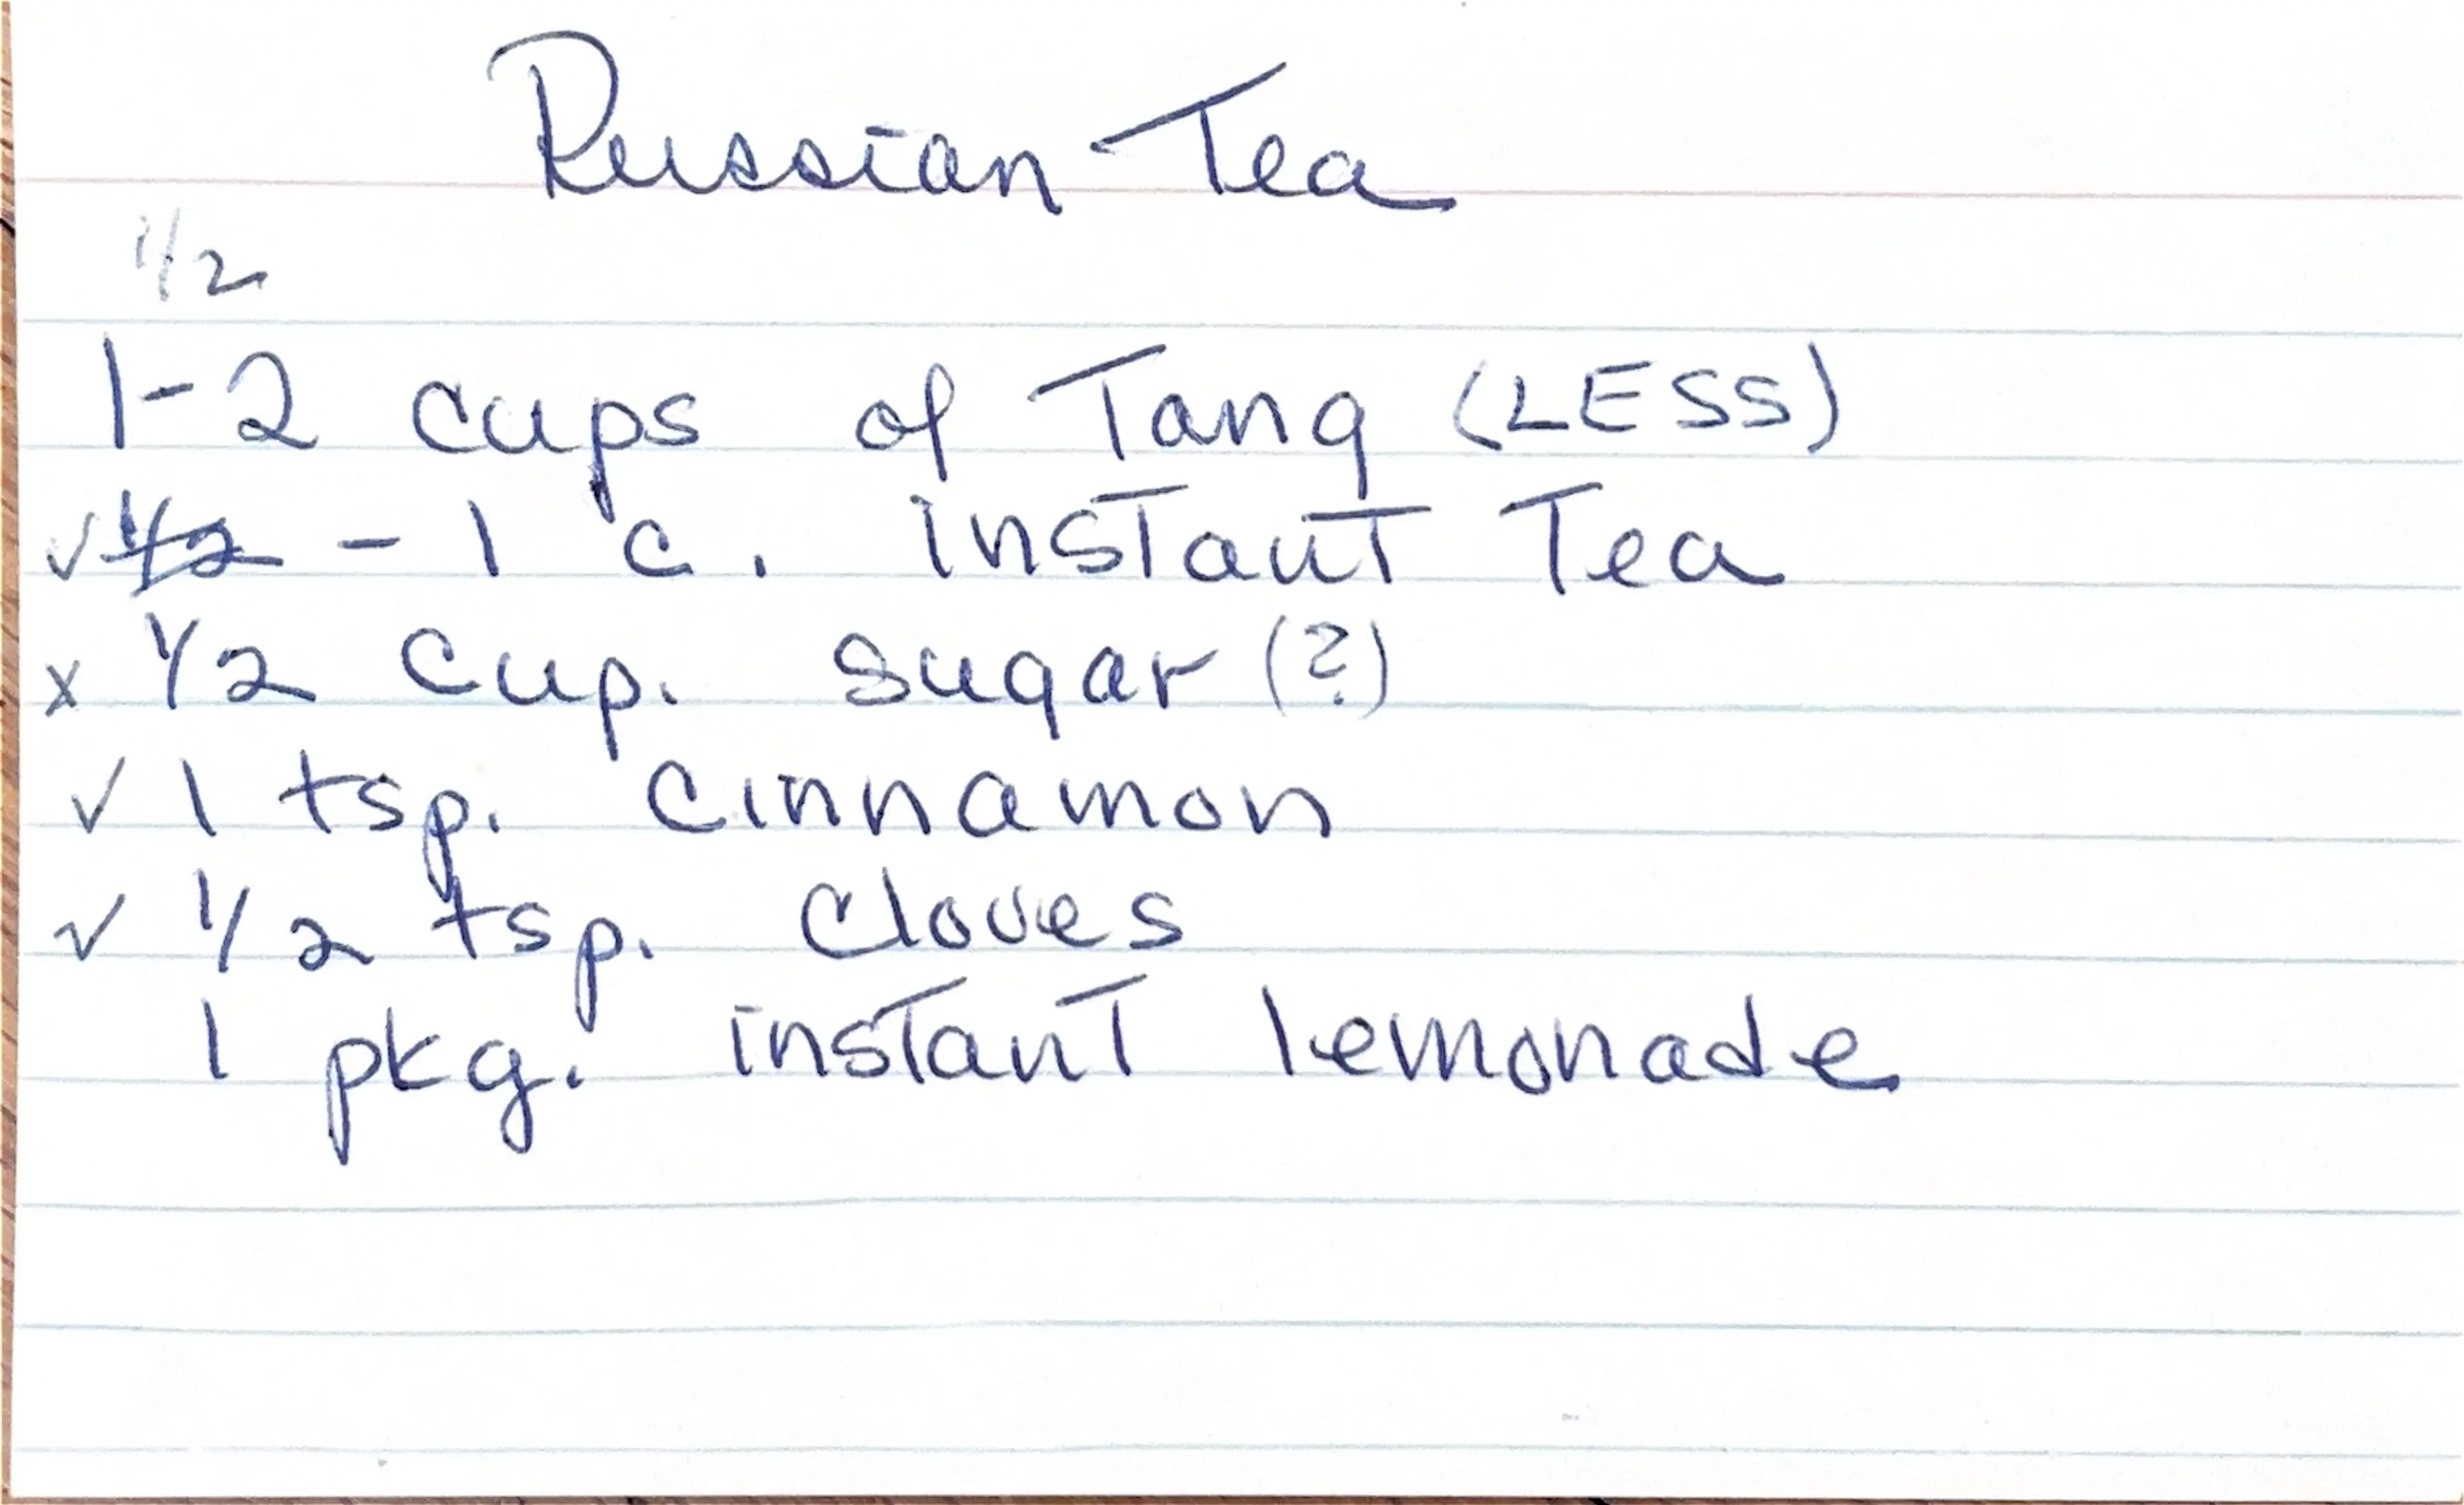 Russian Tea
1/2
1-2 cups of Tang (LESS)
✓ 1/2 - 1 c. instant Tea
x 1/2 cup. sugar (?)
✓ 1 tsp. cinnamon
✓ 1/2 tsp. cloves
1 pkg. instant lemonade